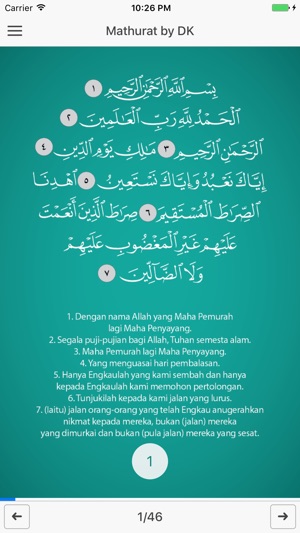 Carrier 10:26 PM
Mathurat by DK
بِسْمِ ٱللَّهِ ٱلرَّحْمَٰنِ ٱلرَّحِيمِ ١
ٱلْحَمْدُ لِلَّهِ رَبِّ ٱلْعَٰلَمِينَ ٢
ٱلرَّحْمَٰنِ ٱلرَّحِيمِ ٣ مَٰلِكِ يَوْمِ ٱلدِّينِ ٤
إِيَّاكَ نَعْبُدُ وَإِيَّاكَ نَسْتَعِينُ ٥ ٱهْدِنَا
ٱلصِّرَٰطَ ٱلْمُسْتَقِيمَ ٦ صِرَٰطَ ٱلَّذِينَ أَنْعَمْتَ
عَلَيْهِمْ غَيْرِ ٱلْمَغْضُوبِ عَلَيْهِمْ
وَلَا ٱلضَّآلِّينَ ٧
1. Dengan nama Allah yang Maha Pemurah
lagi Maha Penyayang.
2. Segala puji-pujian bagi Allah, Tuhan semesta alam.
3. Maha Pemurah lagi Maha Penyayang.
4. Yang menguasai hari pembalasan.
5. Hanya Engkaulah yang kami sembah dan hanya
kepada Engkaulah kami memohon pertolongan.
6. Tunjukilah kepada kami jalan yang lurus.
7. (Iaitu) jalan orang-orang yang telah Engkau anugerahkan
nikmat kepada mereka, bukan (jalan) mereka
yang dimurkai dan bukan (pula jalan) mereka yang sesat.
1
1/46